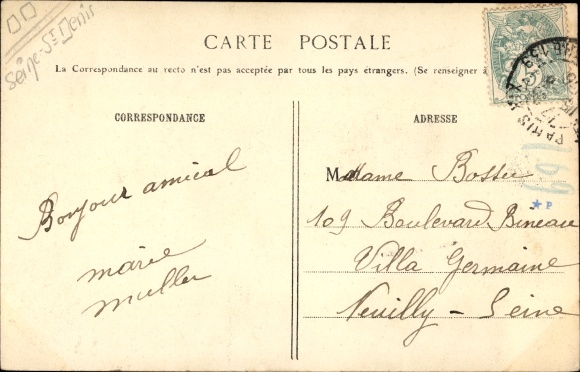 Seine-St Denis
CARTE POSTALE
La Correspondance au recto n'est pas acceptée par tous les pays étrangers. (Se renseigner à
CORRESPONDANCE
ADRESSE
Bonjour amical
marie
muller
Madame Bossu
109 Boulevard Bineau
Villa Germaine
Neuilly - Seine
691
★ P
PARIS
5